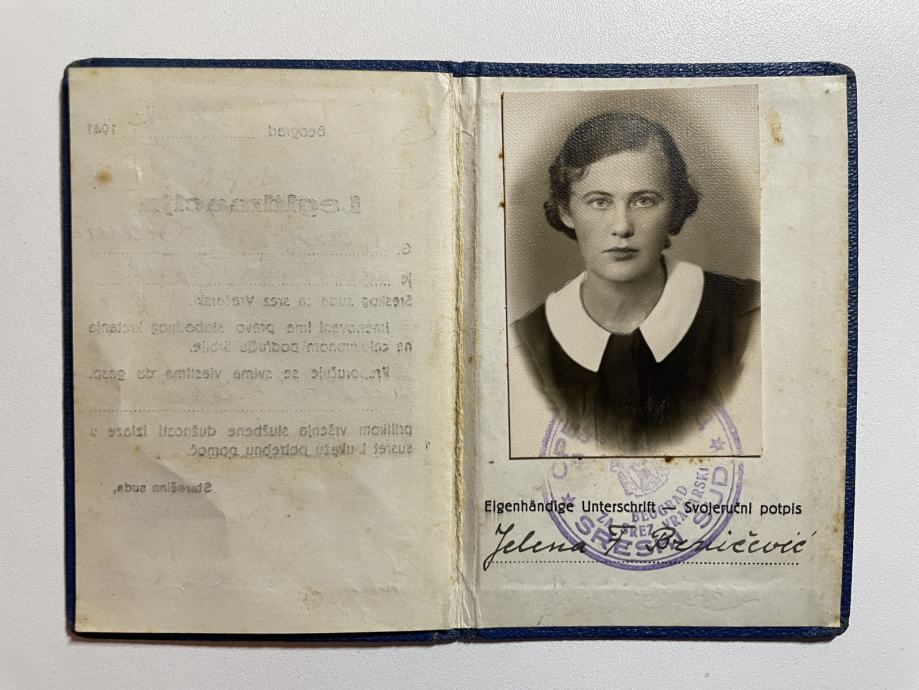 Beograd, 1941
Legitimacija
G.
je
Sreskog suda za srez Vračarski.
Imenovani ima pravo slobodnog kretanja
na celokupnom području Srbije.
Preporučuje se svima vlastima da gosp.
prilikom vršenja službene dužnosti izlaze u
susret i ukažu potrebnu pomoć.
Starešina suda,
Eigenhändige Unterschrift — Svojeručni potpis
Jelena F. Brničević
BEOGRAD
ZA SREZ VRAČARSKI
SRESKI SUD